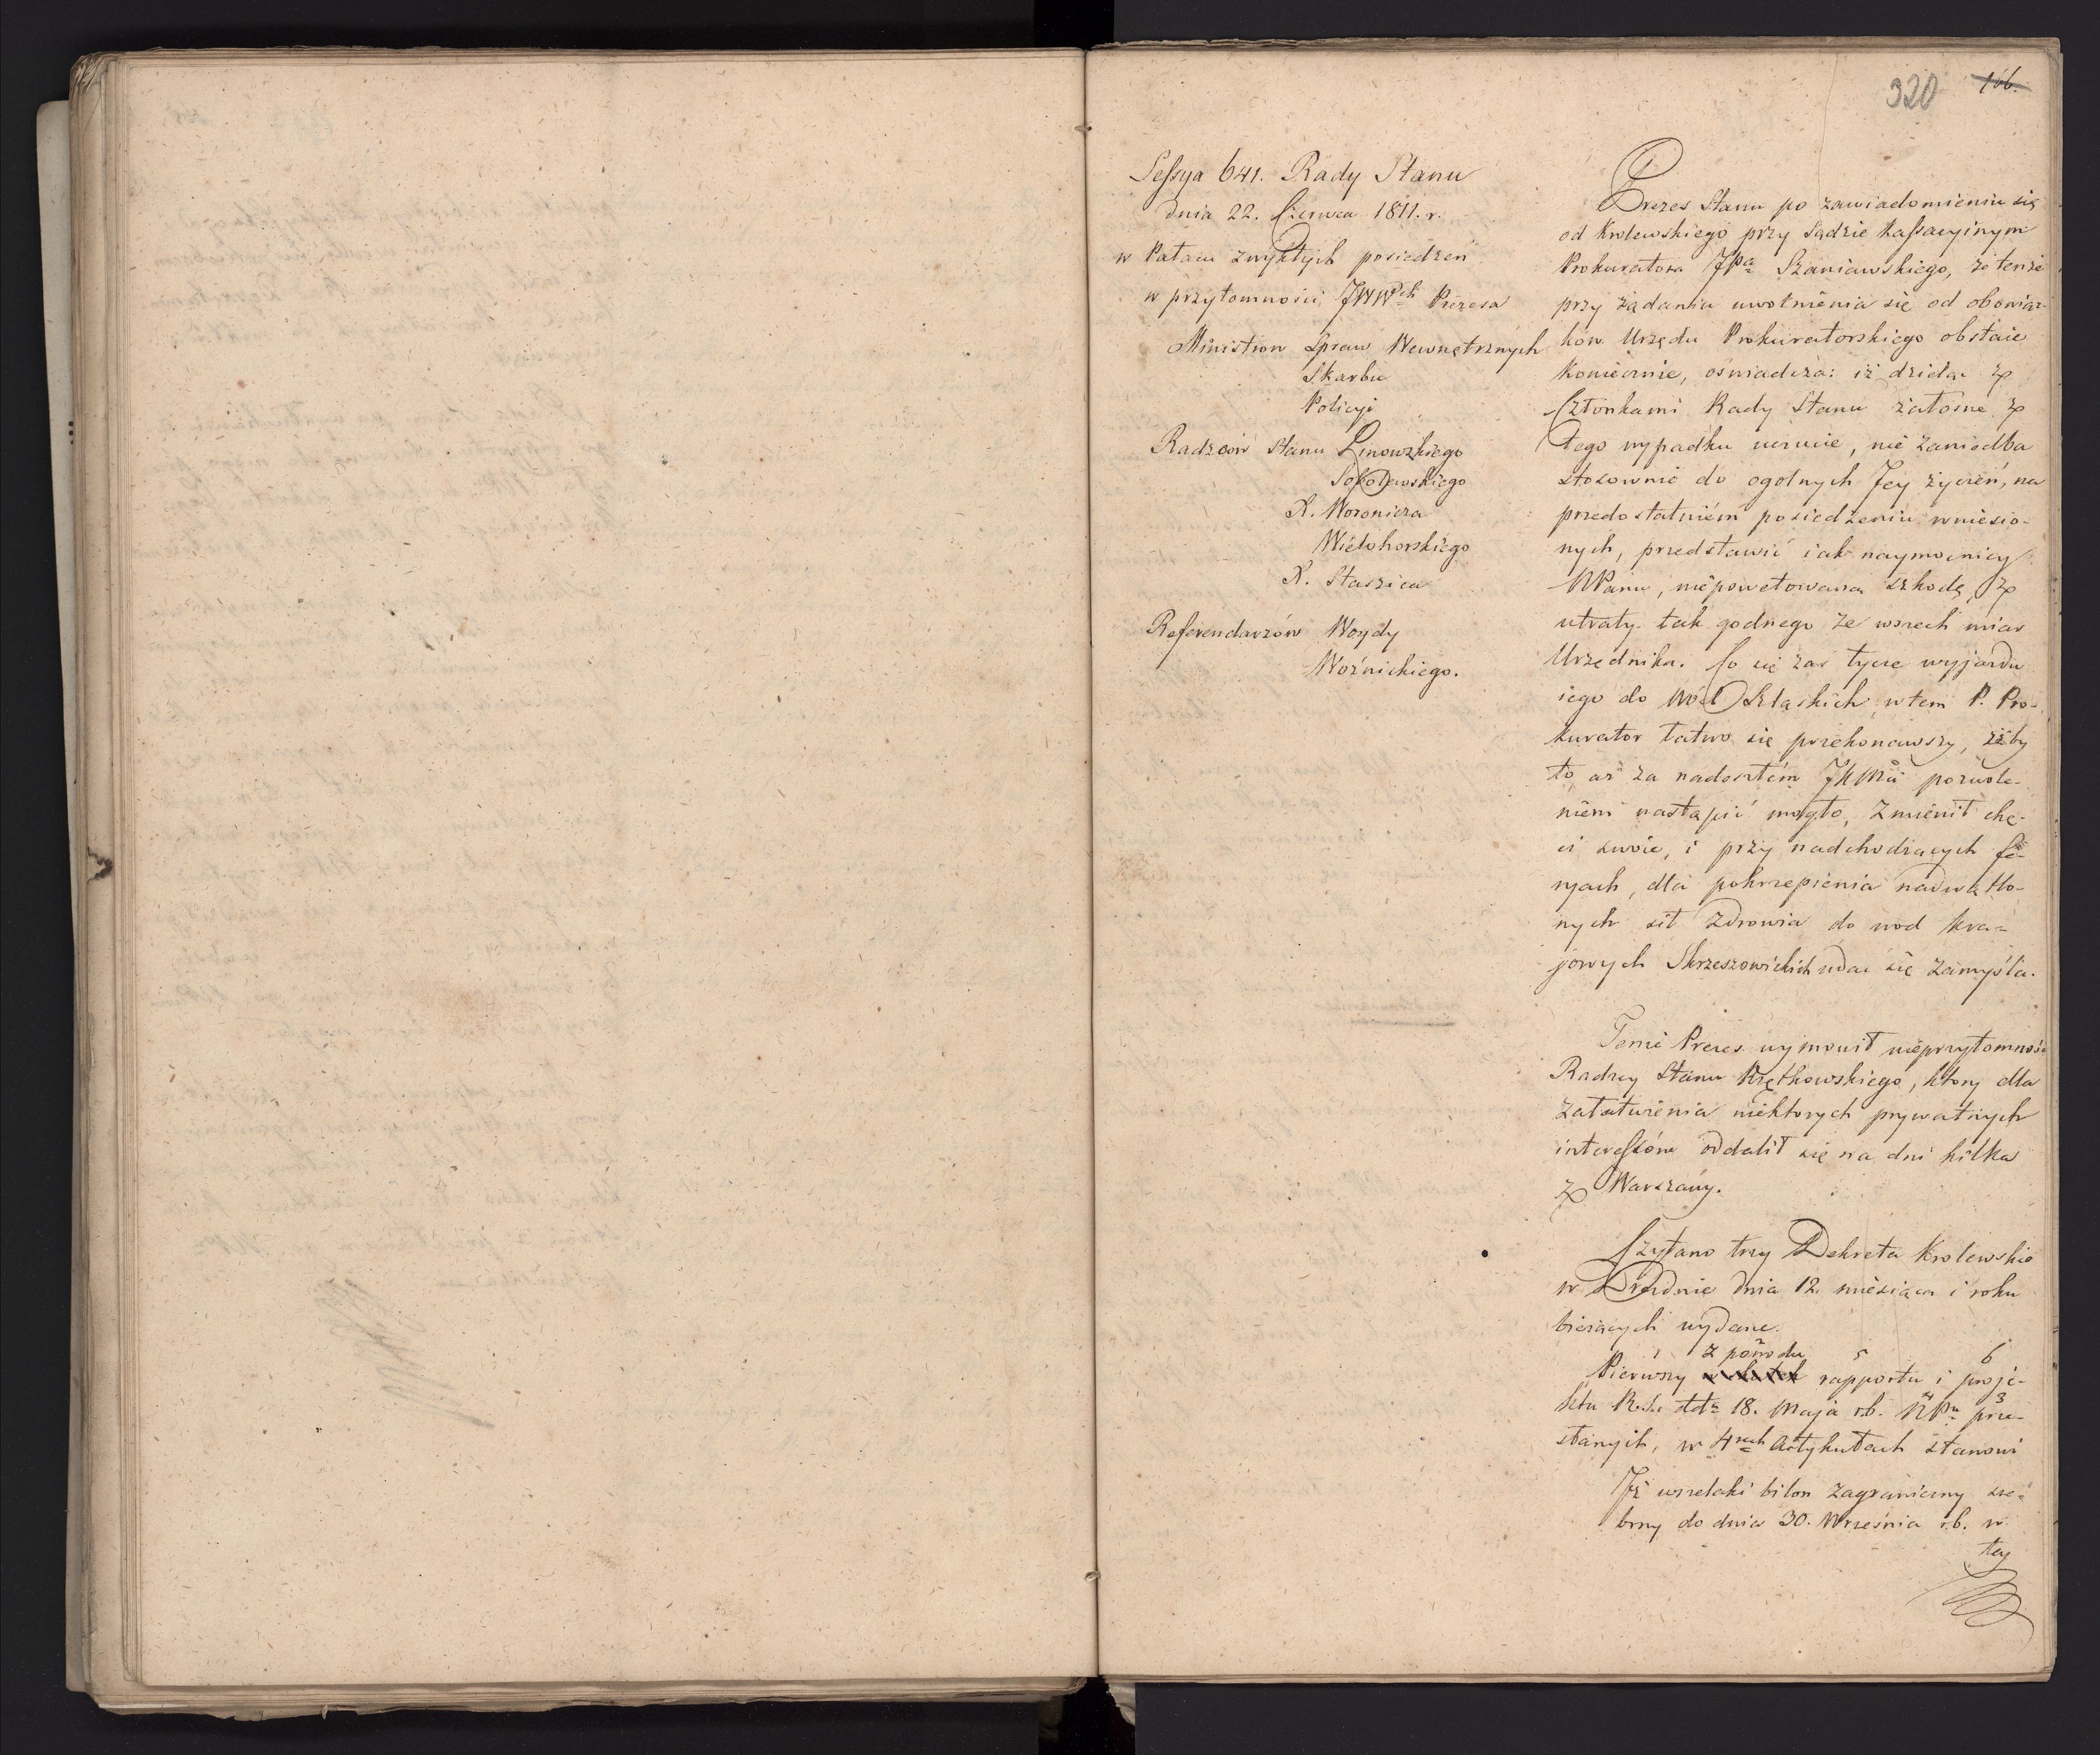 320 166.
Sessya 641. Rady Stanu
dnia 22. Czerwca 1811. r.
w Pałacu zwykłych posiedzeń
w przytomności JWWPch Prezesa
Ministrow Spraw Wewnętrznych
Skarbu
Policyi
Radzcow Stanu Linowskiego
Sobolewskiego
X. Woronicza
Wielohorskiego
X. Staszica
Referendarzów Woydy
Woźnickiego.
Prezes Stanu po zawiadomieniu się
od Krolewskiego przy Sądzie Kassacyinym
Prokuratora JPa Szaniawskiego, że tenże
przy żądaniu uwolnienia się od obowiąz-
kow Urzędu Prokuratorskiego obstaie
koniecznie, oświadcza: iż dzieląc z
Członkami Rady Stanu żałosne z
tego wypadku uczucie, nie zaniedba
stosownie do ogolnych Jey życzeń, na
przedostatniém posiedzeniu wniesio-
nych, przedstawić iak naymocniey
NPanu, niepowetowaną szkodę z
utraty tak godnego ze wszech miar
Urzędnika. Co się zaś tycze wyjazdu
iego do Wód Szląskich, w tem P. Pro-
kurator łatwo się przekonawszy, żeby
to aż za nadeszłém JKMci pozwole-
niem nastąpić mogło, zmienił chę-
ci swoie, i przy nadchodzących fe-
ryach, dla pokrzepienia nadwątlo-
nych sił zdrowia do wod kra-
jowych Skrzeszowickich udać się zamyśla.
Tenże Prezes wymowił nieprzytomność
Radzcy Stanu Krętkowskiego, ktory dla
załatwienia niektorych prywatnych
interessów oddalił się na dni kilka
z Warszawy.
Czytano trzy Dekreta Krolewskie
w Dreźnie dnia 12. miesiąca i roku
bieżących wydane.
1 z powodu 2 5 6
Pierwszy rapportu i proje-
ktu R.S. ddto 18. Maja r.b. NPu 4 prze- 3
słanych, w 4rech Artykułach stanowi
Iż wszelaki bilon zagraniczny sre-
brny do dnia 30. Września r.b. w
tey